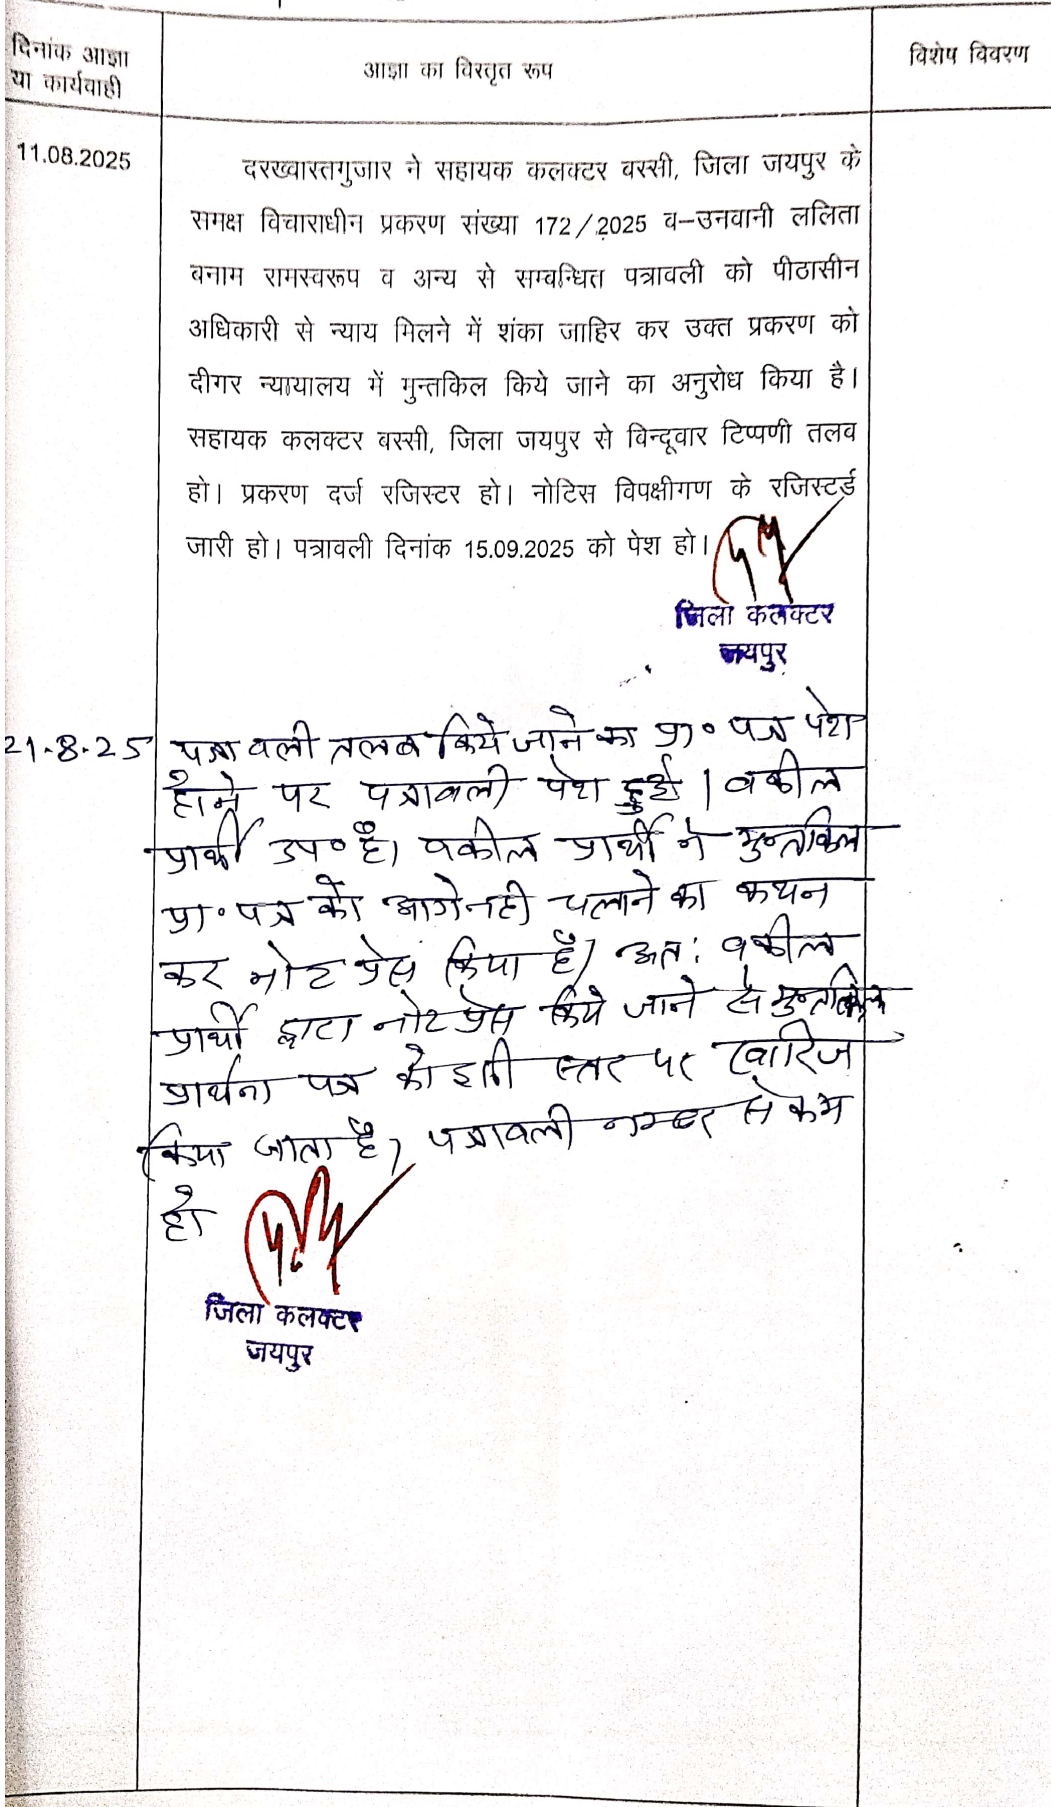 दिनांक आज्ञा
या कार्यवाही
आज्ञा का विस्तृत रूप
विशेष विवरण
11.08.2025
दरख्वास्तगुजार ने सहायक कलक्टर बस्सी, जिला जयपुर के
समक्ष विचाराधीन प्रकरण संख्या 172/2025 ब-उनवानी ललिता
बनाम रामस्वरूप व अन्य से सम्बन्धित पत्रावली को पीठासीन
अधिकारी से न्याय मिलने में शंका जाहिर कर उक्त प्रकरण को
दीगर न्यायालय में मुन्तकिल किये जाने का अनुरोध किया है।
सहायक कलक्टर बस्सी, जिला जयपुर से बिन्दूवार टिप्पणी तलब
हो। प्रकरण दर्ज रजिस्टर हो। नोटिस विपक्षीगण के रजिस्टर्ड
जारी हो। पत्रावली दिनांक 15.09.2025 को पेश हो।
जिला कलक्टर
जयपुर
21-8-25 पत्रावली तलब किये जाने का प्रा० पत्र पेश
होने पर पत्रावली पेश हुई। वकील
प्रार्थी उप० है। वकील प्रार्थी ने मुन्तकिल
प्रा० पत्र को आगे नही चलाने का कथन
कर नोट प्रेस किया है। अतः वकील
प्रार्थी द्वारा नोट प्रेस किये जाने से मुन्तकिल
प्रार्थना पत्र को इसी स्तर पर खारिज
किया जाता है, पत्रावली नम्बर से कम
हो
जिला कलक्टर
जयपुर